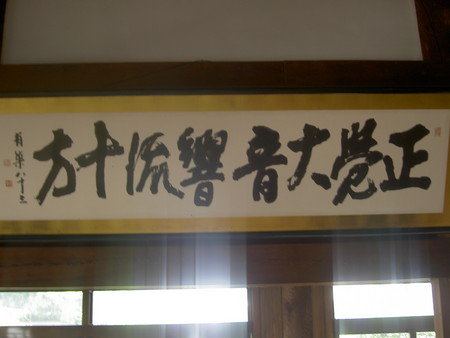 正覺大音響流十方
八十三